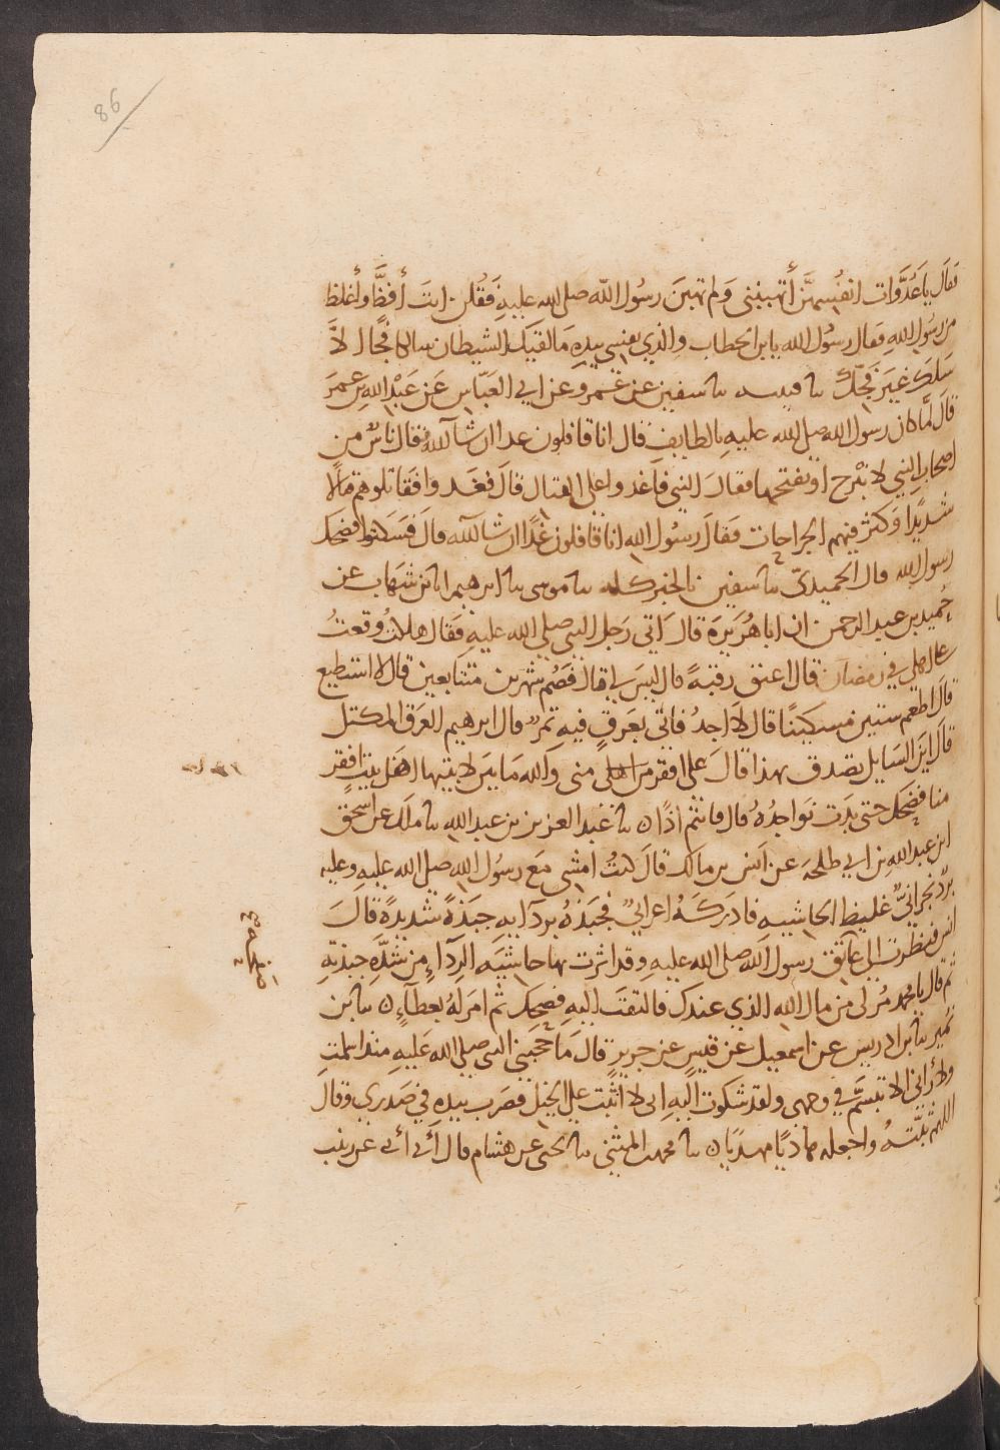 86
فقال يا عدوات انفسهن أتهبنني ولم تهبن رسول الله صلى الله عليه فقلن انت أفظ وأغلظ
من رسول الله فقال رسول الله يا بن الخطاب والذي نفسي بيده ما لقيك الشيطان سالكا فجا الا
سلك غير فجك نا قتيبة نا سفين عن عمرو عن ابي العباس عن عبد الله بن عمر
قال لما كان رسول الله صلى الله عليه بالطايف قال انا قافلون غدا ان شا الله فقال ناس من
اصحاب النبي لا نبرح او نفتحها فقال النبي فاغدوا على القتال قال فغدوا فقاتلوهم قتالا
شديدا وكثر فيهم الجراحات فقال رسول الله انا قافلون غدا ان شا الله قال فسكتوا فضحك
رسول الله قال الحميدي نا سفين بالخبر كله نا موسى نا ابرهيم انا بن شهاب عن
حميد بن عبد الرحمن ان ابا هريرة قال اتى رجل النبي صلى الله عليه فقال هلكت وقعت
على اهلي في رمضان قال اعتق رقبة قال ليس لي قال فصم شهرين متتابعين قال لا استطيع
قال اطعم ستين مسكينا قال لا اجد فاتي بعرق فيه تمر قال ابرهيم العرق المكتل
قال اين السايل تصدق بهذا قال على افقر من مني والله ما بين لابتيها اهل بيت افقر
منا فضحك حتى بدت نواجذه قال فانتم اذا ن نا عبد العزيز بن عبد الله نا ملك عن اسحق
ابن عبد الله بن ابي طلحة عن انس بن مالك قال كنت امشي مع رسول الله صلى الله عليه وعليه
برد نجراني غليظ الحاشيه فادركه اعرابي فجبذه بردآيه جبذة شديدة قال
انس فنظرت الى عاتق رسول الله صلى الله عليه وقد اثرت بها حاشيه الردآء من شده جبذته
ثم قال يا محمد مر لي من مال الله الذي عندك فالتفت اليه فضحك ثم امر له بعطآء ن نا بن
نمير نا بن ادريس عن اسمعيل عن قيس عن جرير قال ما حجبني النبي صلى الله عليه منذ اسلمت
ولا رآني الا تبسم في وجهي ولقد شكوت اليه اني لا اثبت على الخيل فضرب بيده في صدري وقال
اللهم ثبته واجعله هاديا مهديا ن نا محمد بن المثنى نا يحيى عن هشام قال أنا أبي عن زينب